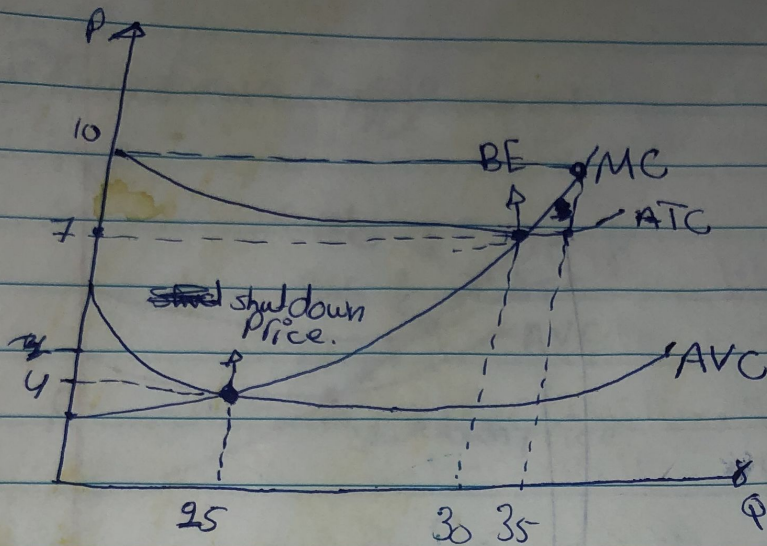 P
10
BE
MC
7
ATC
shutdown
Price.
4
AVC
25
30
35
Q